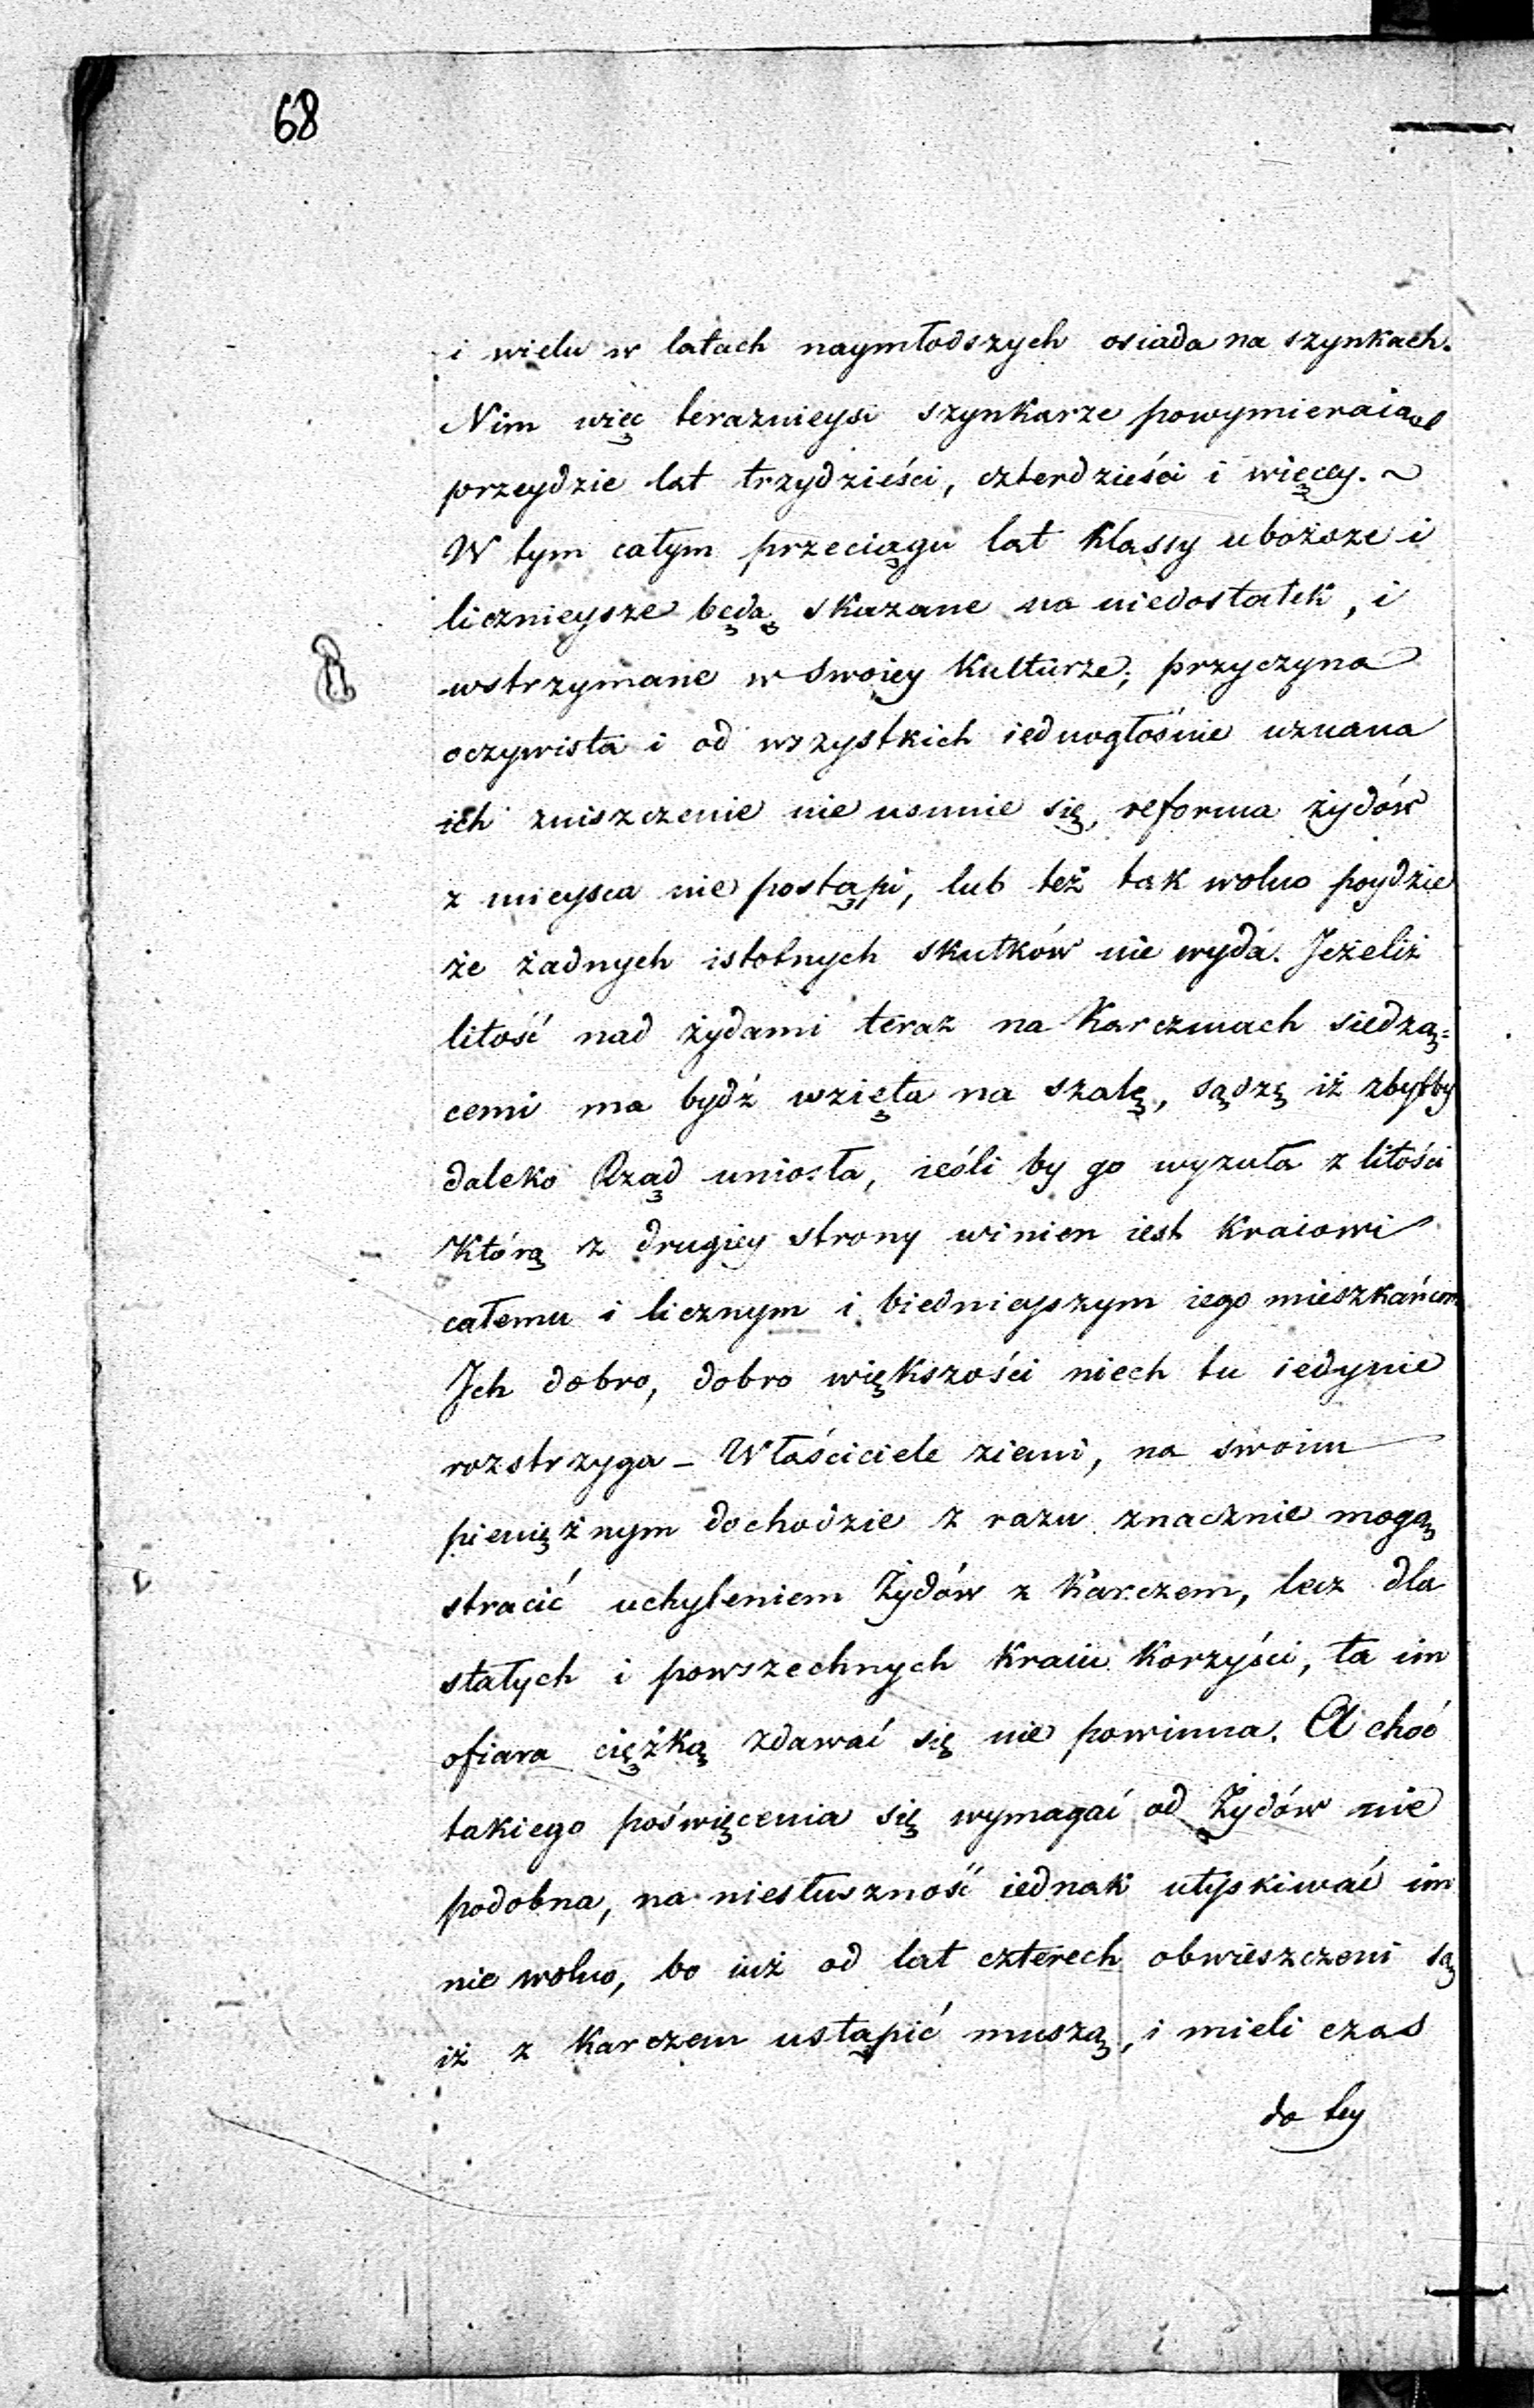 68
i wielu w latach naymłodszych osiada na szynkach.
Nim więc teraznieysi szynkarze powymieraią
przeydzie lat trzydzieści, czterdzieści i więcey. ~
W tym całym przeciągu lat Klassy uboższe i
licznieysze będą skazane na niedostatek, i
wstrzymane w swoiey Kulturze; przyczyna
oczywista i od wszystkich iednogłośnie uznana
ich zniszczenie nie usunie się, reforma żydów
z mieysca nie postąpi, lub też tak wolno poydzie
że żadnych istotnych skutków nie wyda. Jeżeliż
litość nad żydami teraz na Karczmach siedzą=
cemi ma bydź wzięta na szalę, sądzę iż zbytby
daleko Rząd uniosła, ieśli by go wyzuła z litości
Którą z drugiey strony winien iest Kraiowi
całemu i licznym i biednieyszym iego mieszkańcom
Jch dobro, dobro większości niech tu iedynie
rozstrzyga – Właściciele ziemi, na swoim
pieniężnym dochodzie z razu znacznie mogą
stracić uchyleniem Żydów z Karczem, lecz dla
stałych i powszechnych Kraiu Korzyści, ta im
ofiara ciężką zdawać się nie powinna. A choć
takiego poświęcenia się wymagać od Żydów nie
podobna, na niesłuszność iednak utyskiwać im
nie wolno, bo iuż od lat czterech obwieszczeni są
iż z Karczem ustąpić muszą, i mieli czas
do tey